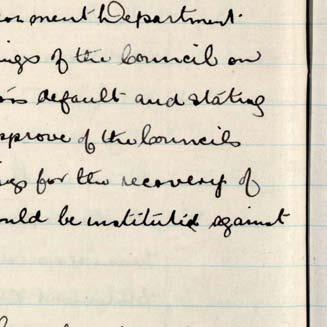 onment Department.
ings of the Council on
default and stating
approve of the Councils
ings for the recovery of
ould be instituted against